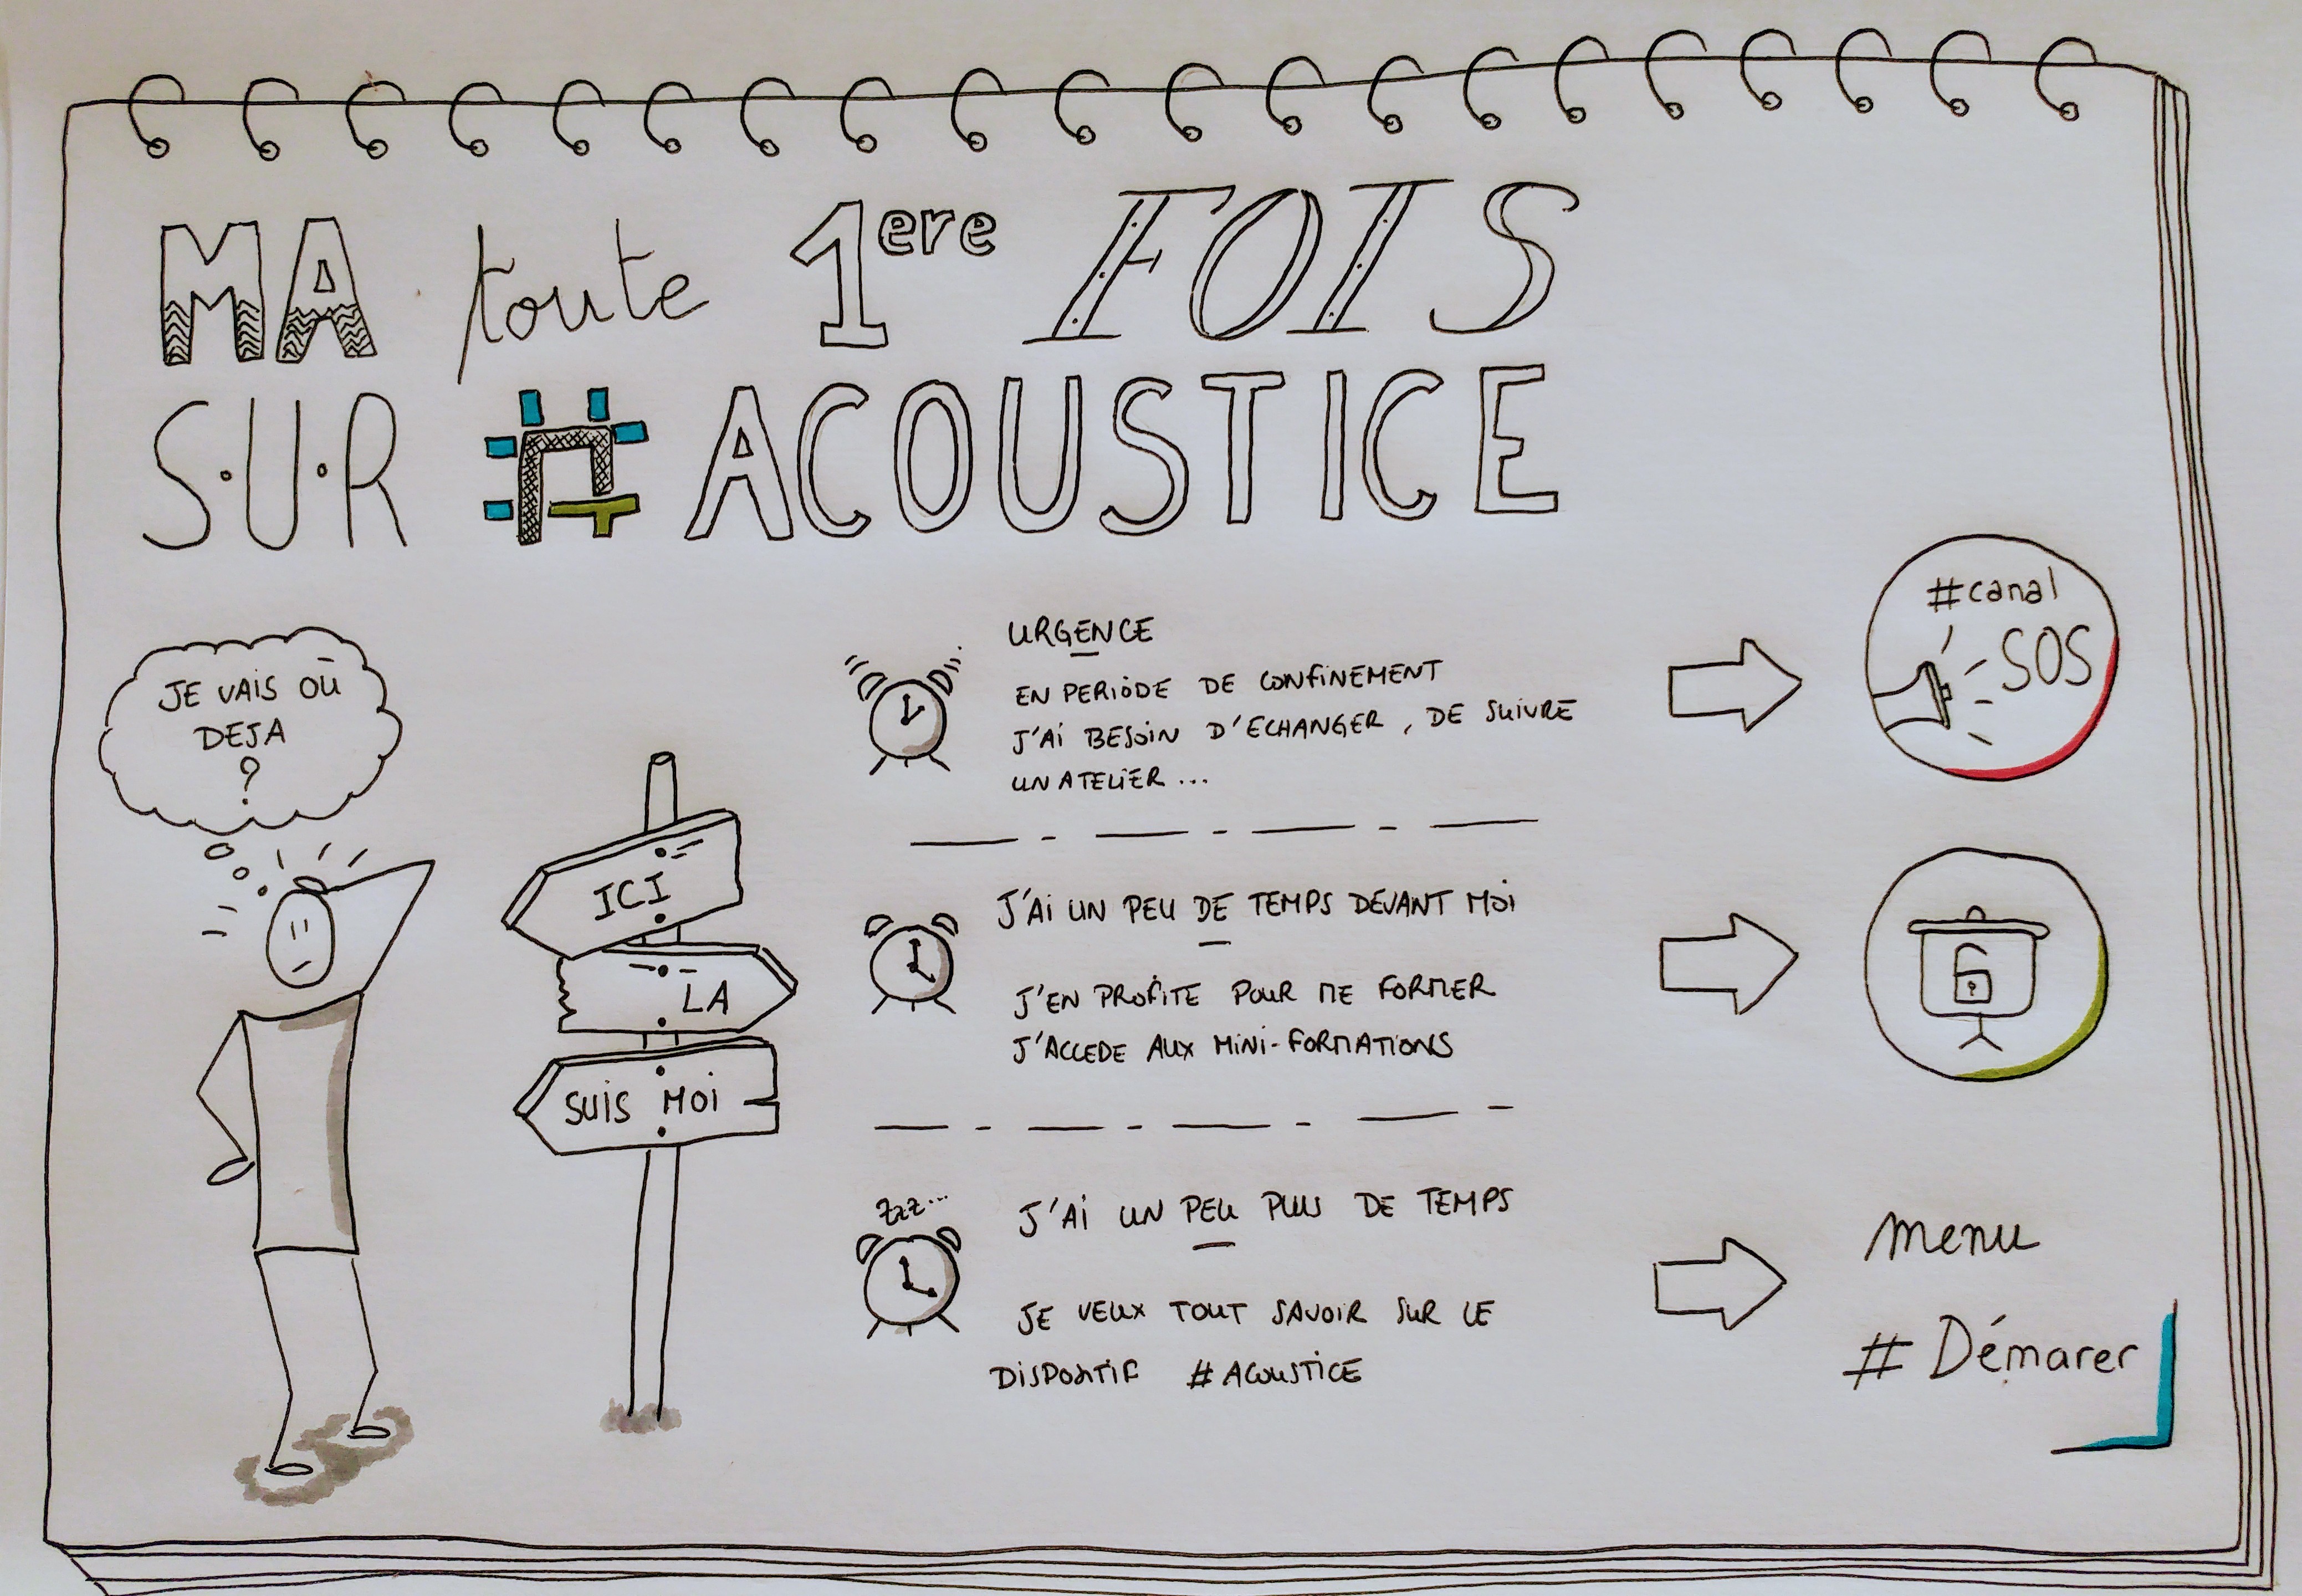 MA toute 1ere FOIS
S.U.R # ACOUSTICE
JE VAIS OÙ
DEJA
?
ICI
LA
SUIS MOI
URGENCE
EN PERIODE DE CONFINEMENT
J'AI BESOIN D'ECHANGER, DE SUIVRE
UN ATELIER ...
#canal
SOS
J'AI UN PEU DE TEMPS DEVANT MOI
J'EN PROFITE POUR ME FORMER
J'ACCEDE AUX MINI-FORMATIONS
Zzz...
J'AI UN PEU PLUS DE TEMPS
JE VEUX TOUT SAVOIR SUR LE
DISPOSITIF # ACOUSTICE
menu
# Démarer